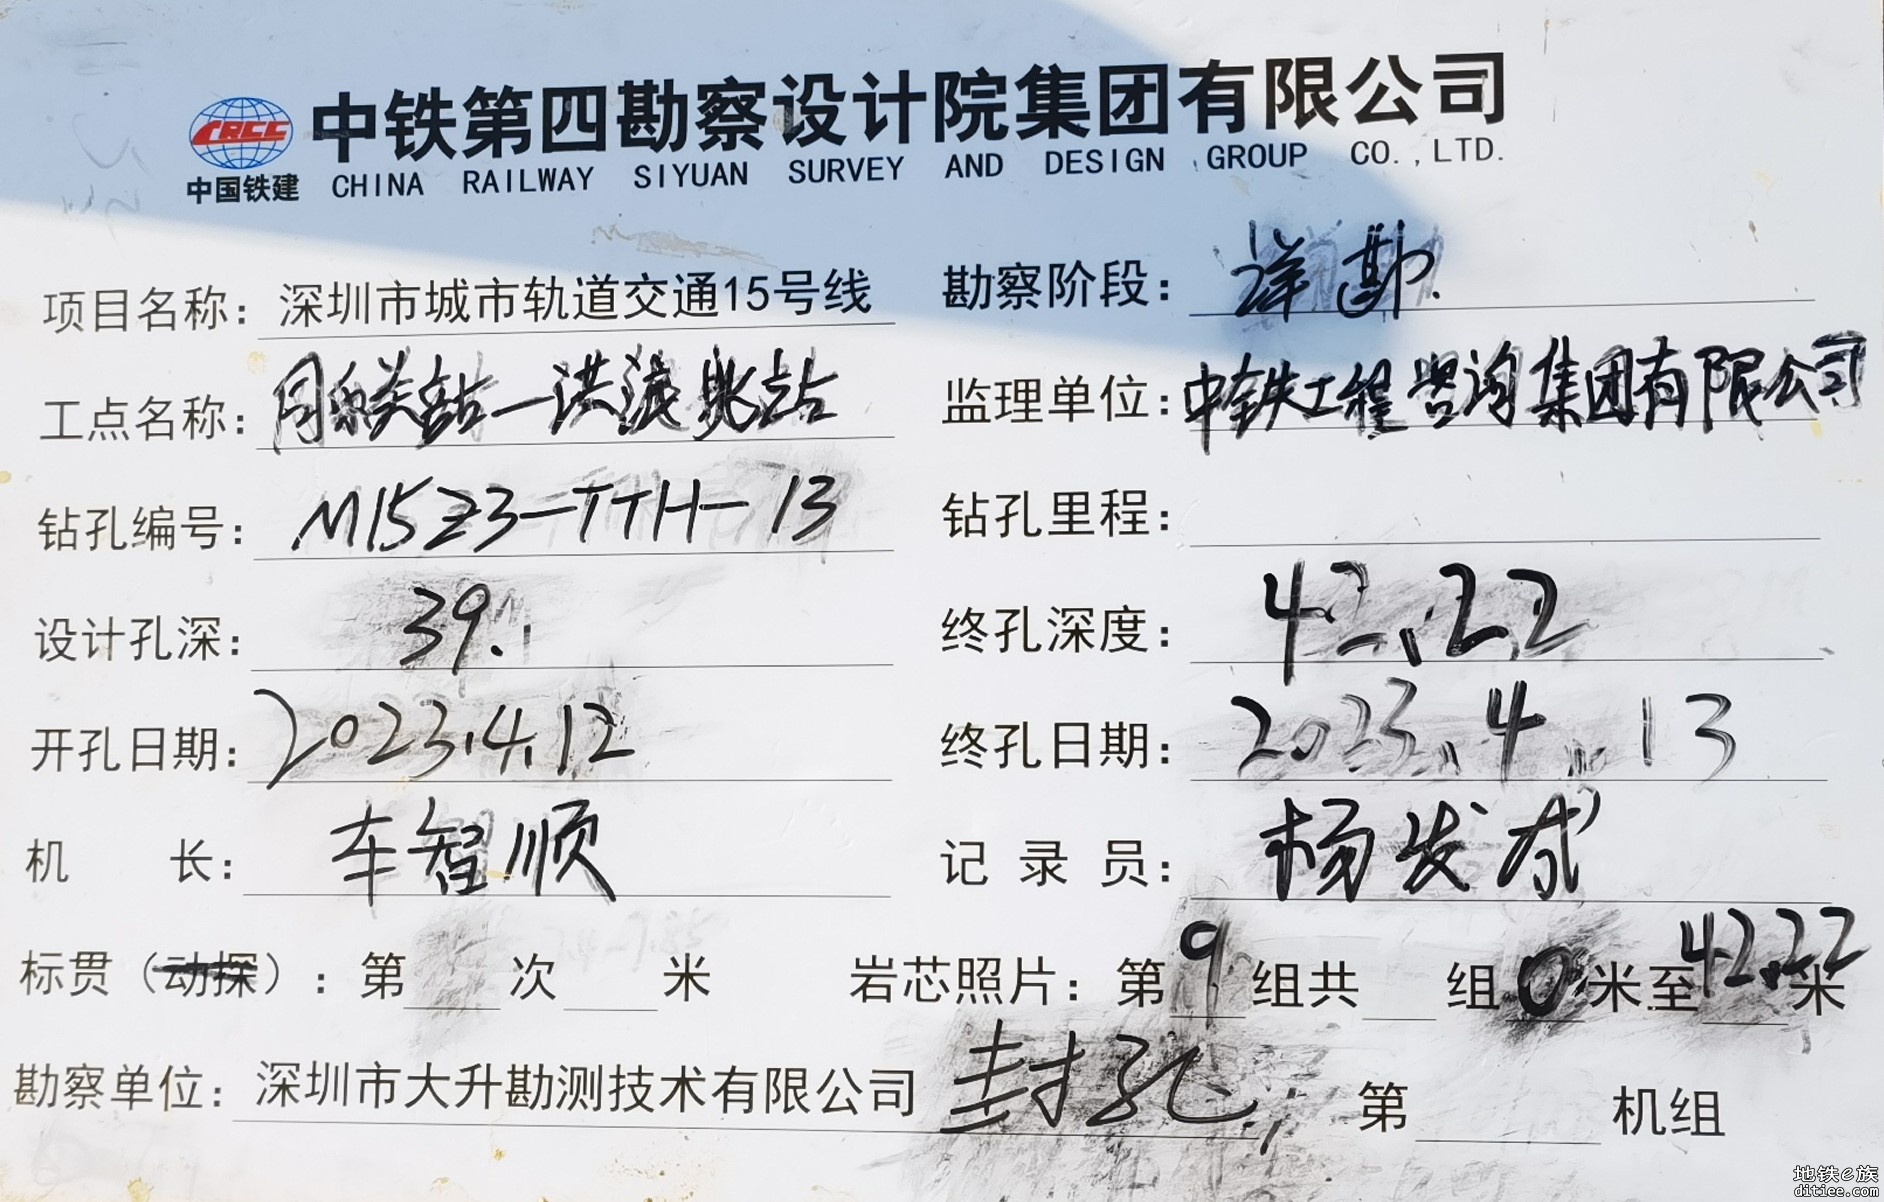 中铁第四勘察设计院集团有限公司
CRCC
中国铁建 CHINA RAILWAY SIYUAN SURVEY AND DESIGN GROUP CO.,LTD.
项目名称：深圳市城市轨道交通15号线 勘察阶段：详勘.
工点名称：同乐关站—洪浪北站 监理单位：中铁工程咨询集团有限公司
钻孔编号：M15Z3-TTH-13 钻孔里程：
设计孔深：39. 终孔深度：42.22
开孔日期：2023.4.12 终孔日期：2023.4.13
机 长：车智顺 记录员：杨发
标贯（动探）：第 次 米 岩芯照片：第9组共 组0米至42.22米
勘察单位：深圳市大升勘测技术有限公司 封孔 第 机组
地铁e族
ditiee.com